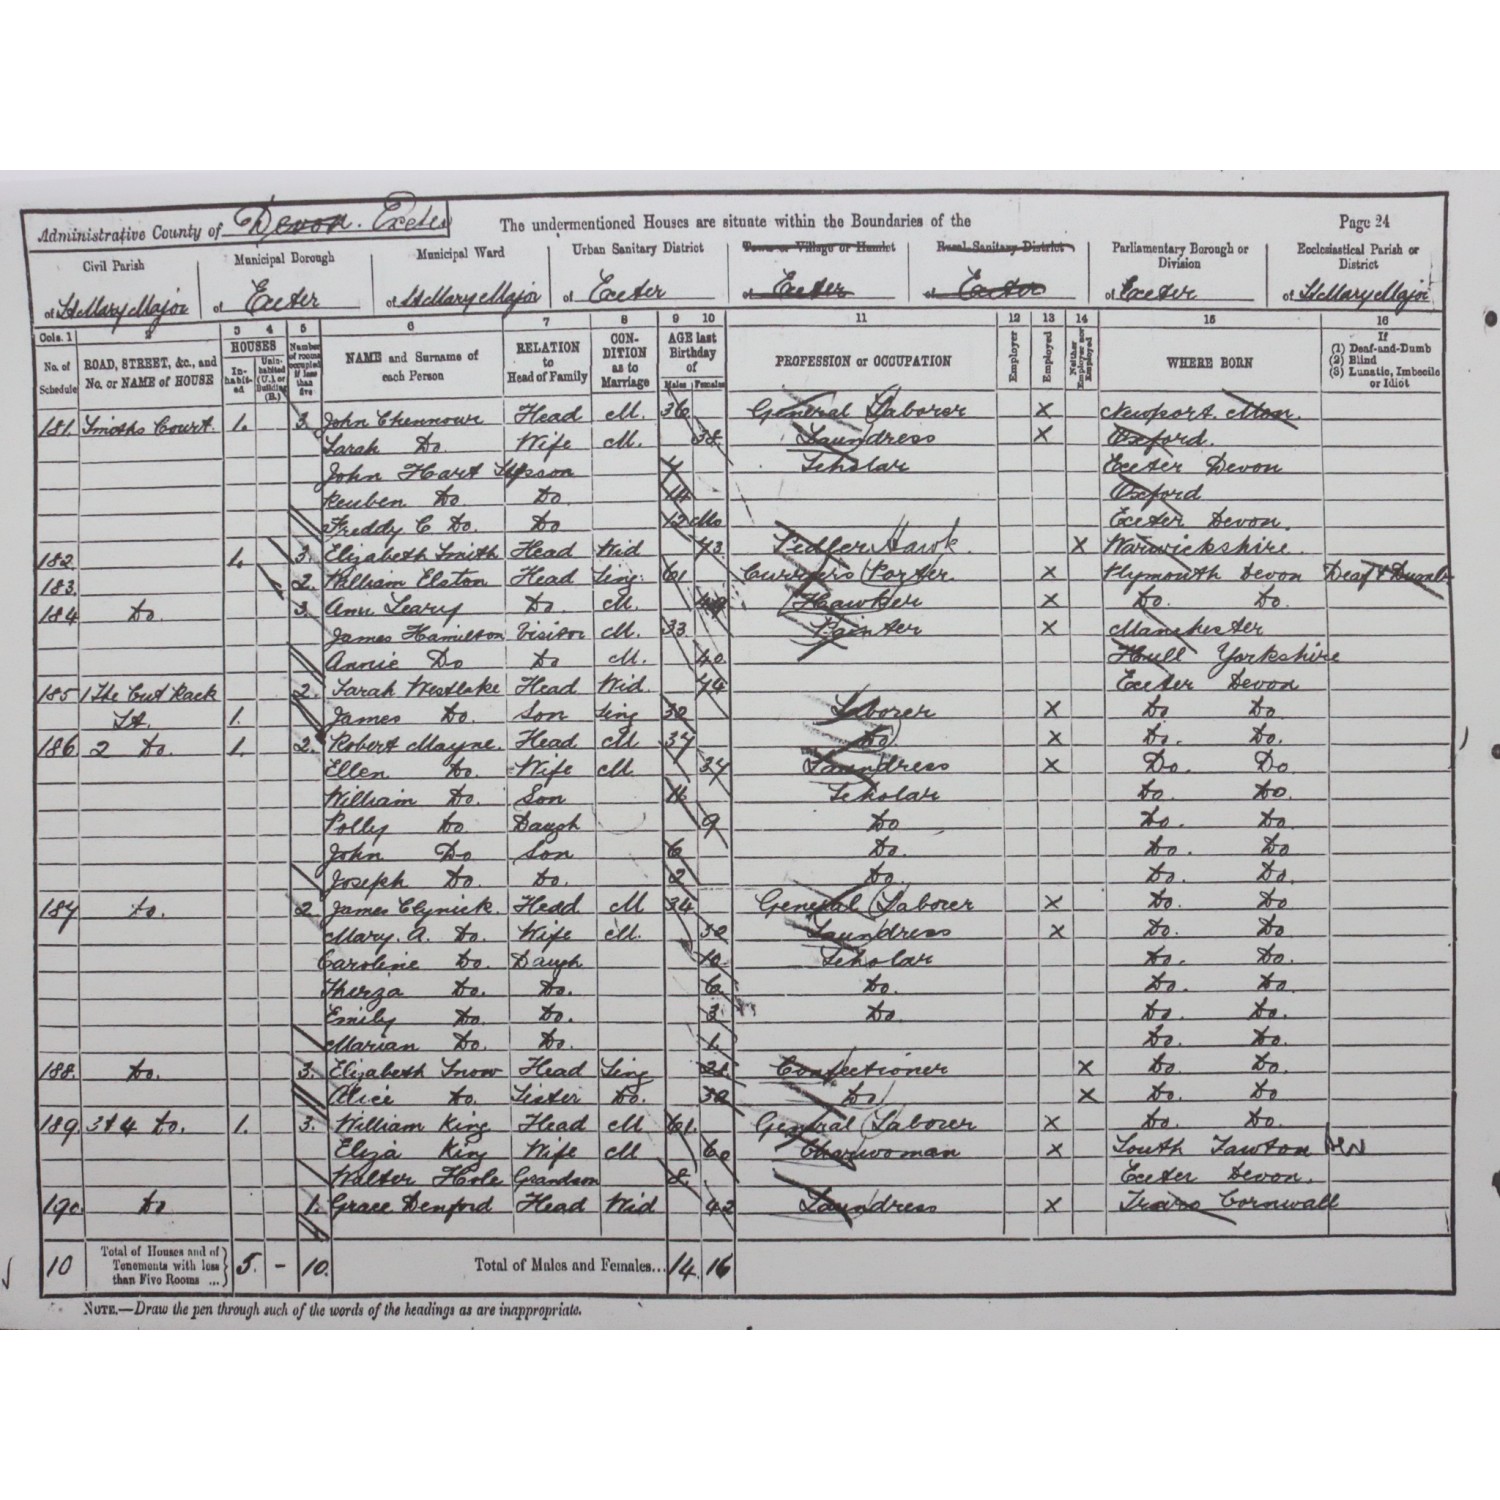 Administrative County of Devon. Exeter The undermentioned Houses are situate within the Boundaries of the Page 24
Civil Parish Municipal Borough Municipal Ward Urban Sanitary District Town or Village or Hamlet Rural Sanitary District Parliamentary Borough or Division Ecclesiastical Parish or District
of St Mary Major of Exeter of St Mary Major of Exeter of Exeter of Exeter of Exeter of St Mary Major
Cols. 1 2 3 4 5 6 7 8 9 10 11 12 13 14 15 16
No. of Schedule ROAD, STREET, &c., and No. or NAME of HOUSE HOUSES Inhabited Uninhabited (U.) or Building (B.) Number of rooms occupied if less than five NAME and Surname of each Person RELATION to Head of Family CONDITION as to Marriage AGE last Birthday of Males Females PROFESSION or OCCUPATION Employer Employed Neither Employer nor Employed WHERE BORN If (1) Deaf-and-Dumb (2) Blind (3) Lunatic, Imbecile or Idiot
181 Smiths Court 1. 3 John Chennour Head M. 36 General Laborer X Newport Mon.
Sarah Do Wife M. 38 Laundress X Oxford.
John Hart Stepson 7 Scholar Exeter Devon
Reuben Do Do 14 Oxford
Freddy C Do. Do 12 Mo Exeter Devon.
182 1. 3. Elizabeth Smith Head Wid 43 Pedler Hawk. X Warwickshire.
183. 2. William Elston Head Sing. 61 Curriers Porter. X Plymouth Devon Deaf & Dumb
184 Do. 3. Ann Leary Do. M. Hawker X Do. Do.
James Hamilton Visitor M. 33 Painter X Manchester
Annie Do Do M. 40 Hull Yorkshire
185 1 The Cut Rack 2. Sarah Westlake Head Wid. 74 Exeter Devon
St. 1. James Do. Son Sing 32 Laborer X Do Do.
186 2 Do. 1. 2. Robert Mayne. Head M 37 Do X Do. Do.
Ellen Do. Wife M 37 Laundress X Do. Do
William Do. Son Scholar Do Do.
Polly Do Daugh 9 Do Do. Do
John Do Son 6 Do. Do. Do.
Joseph Do. Do. 2 Do. Do. Do.
187 Do. 2 James Clynick. Head M 34 General Laborer X Do. Do
Mary. A. Do. Wife M. 32 Laundress X Do. Do
Caroline Do. Daugh 10. Scholar Do. Do.
Therza Do. Do. 6. Do. Do. Do.
Emily Do. Do. 3 Do Do. Do.
Marian Do. Do. 1. Do. Do.
188. Do. 3. Elizabeth Snow Head Sing 28 Confectioner X Do. Do.
Alice Do. Sister Do. 32 Do X Do. Do
189. 3 & 4 Do. 1. 3. William King Head M 61. General Laborer X Do. Do
Eliza King Wife M 60 Charwoman X South Tawton
Walter Hole Grandson 8. Exeter Devon.
190 Do 1. Grace Denford Head Wid 42 Laundress X Truro Cornwall
10 Total of Houses and of Tenements with less than Five Rooms ... 5. - 10. Total of Males and Females... 14 16
NOTE.—Draw the pen through such of the words of the headings as are inappropriate.